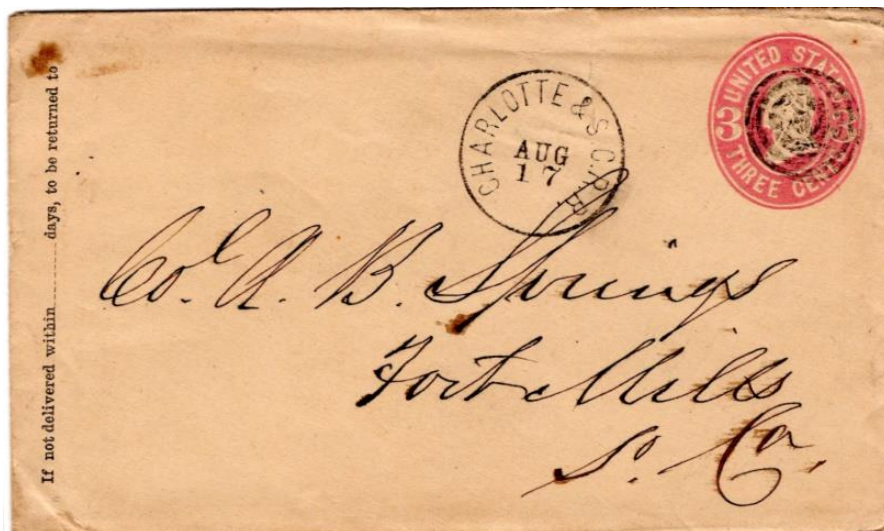 If not delivered within........days, to be returned to
CHARLOTTE & S.C.R.R.
AUG
17
UNITED STATES
3 3
THREE CENTS
Col. A. B. Springs
Fort Mills
So. Ca.